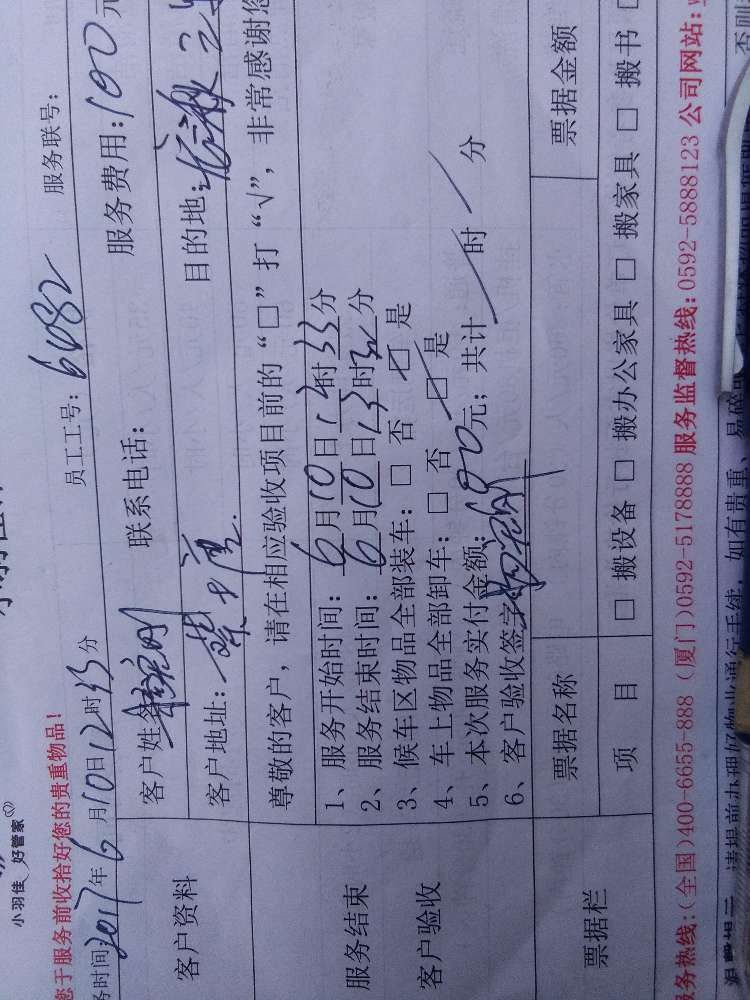 小羽佳 好管家
您于服务前收拾好您的贵重物品!
员工工号: 6082 服务联号:
务时间: 2017年6月10日12时33分
客户资料
客户姓名 联系电话: 服务费用:100元
客户地址: 目的地:
尊敬的客户, 请在相应验收项目前的“□”打“√”, 非常感谢您
服务结束
客户验收
1、服务开始时间: 6月10日12时33分
2、服务结束时间: 6月10日13时 分
3、候车区物品全部装车: □ 否 ☑ 是
4、车上物品全部卸车: □ 否 ☑ 是
5、本次服务实付金额: 元; 共计 / 时 / 分
6、客户验收签字
票据栏
票据名称 票据金额
项 目 □ 搬设备 □ 搬办公家具 □ 搬家具 □ 搬书
务热线: (全国)400-6655-888 (厦门)0592-5178888 服务监督热线: 0592-5888123 公司网站:
请提前办理好物业通行手续, 如有贵重、易碎 否则